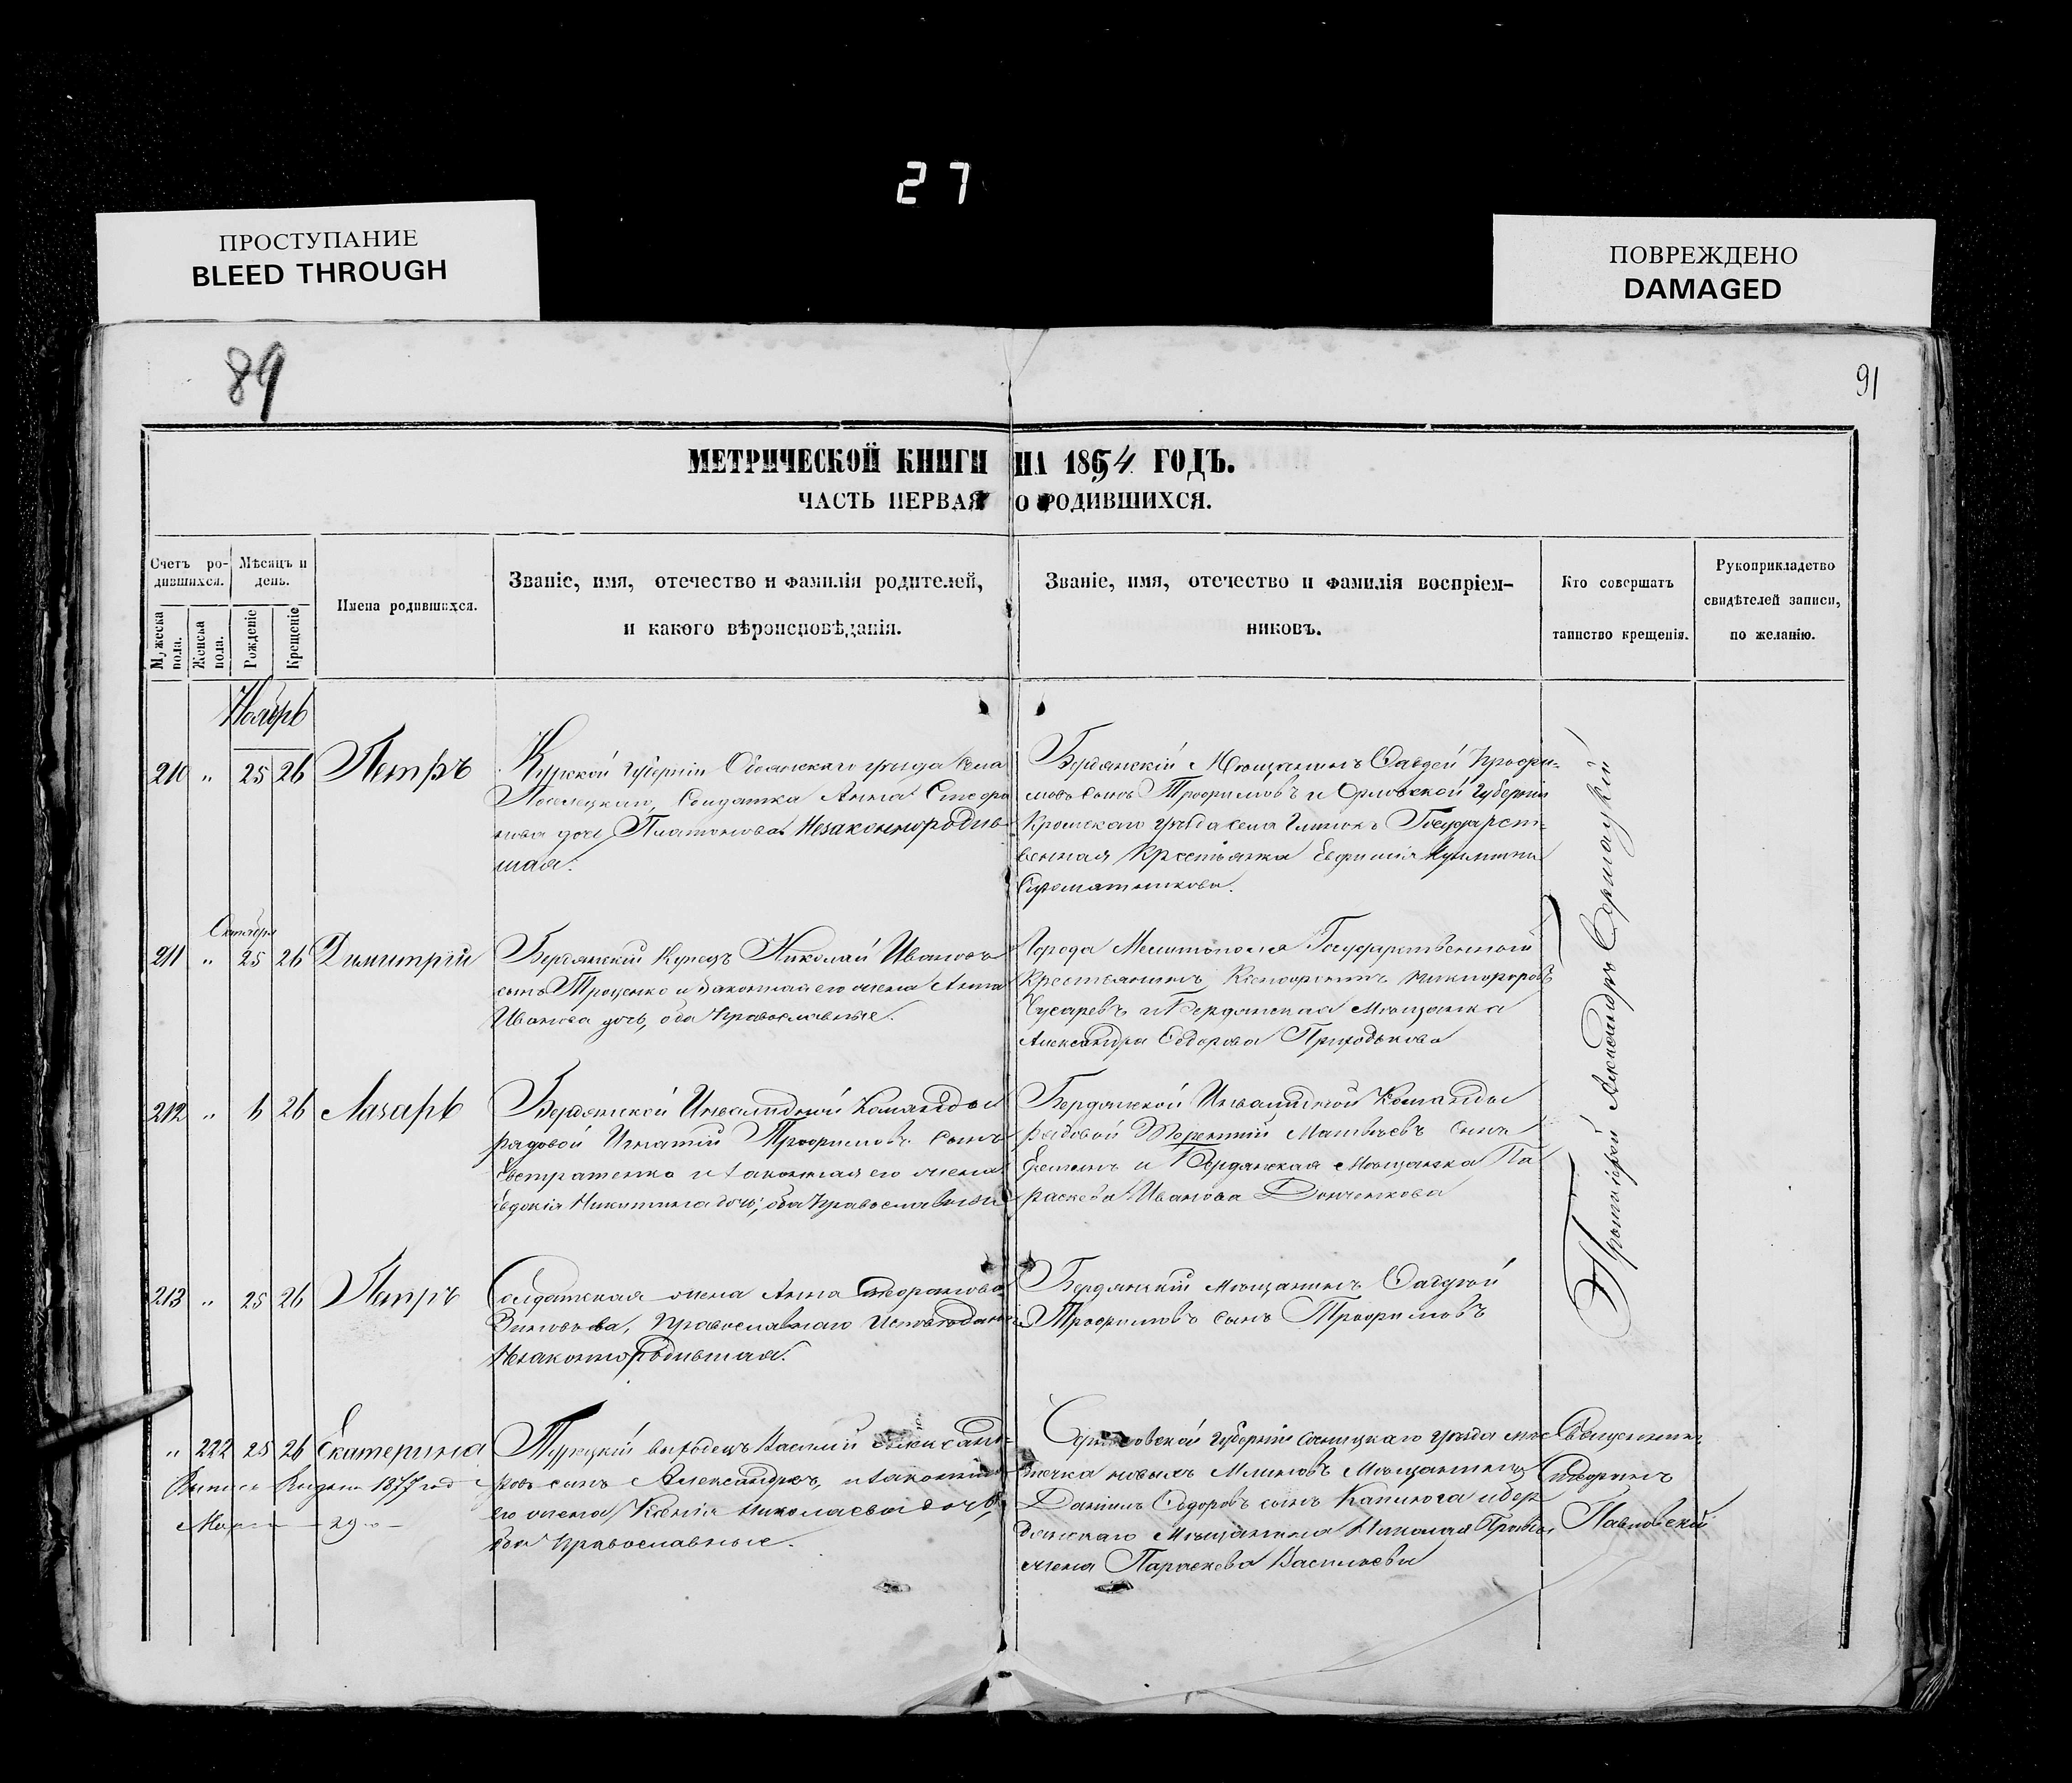 27
ПРОСТУПАНИЕ
BLEED THROUGH
ПОВРЕЖДЕНО
DAMAGED
89
91
МЕТРИЧЕСКОЙ КНИГИ НА 1854 ГОДЪ.
ЧАСТЬ ПЕРВАЯ О РОДИВШИХСЯ.
Счетъ ро-
дившихся.
Мужеска пола.
Женска пола.
Мѣсяцъ и
день.
Рожденіе
Крещеніе
Имена родившихся.
Званіе, имя, отечество и фамилія родителей,
и какого вѣроисповѣданія.
Званіе, имя, отечество и фамилія воспріем-
никовъ.
Кто совершатъ
таинство крещенія.
Рукоприкладство
свидѣтелей записи,
по желанію.
Ноябрь
210 " 25 26 Петръ
Курской губерніи Обоянскаго уѣзда села
солдатка Анна
дочь Платонова Незаконнородив-
шая.
Бердянскій Мѣщанинъ Фаддей Трофи-
мовъ сынъ Трофимовъ и Орловской губерніи
Кромскаго уѣзда села Государст-
венная Крестьянка Евфимія
Октября
211 " 25 26 Димитрій
Бердянскій Купецъ Николай Ивановъ
сынъ Троценко и законная его жена Анна
Иванова дочь, оба Православные.
Города Мелитополя Государственной
Крестьянинъ Ксенофонтъ Никифоровъ
и Бердянская Мѣщанка
Александра Ѳедорова Приходькова
212 " 6 26 Лазарь
Бердянской Инвалидной Команды
рядовой Игнатій Трофимовъ сынъ
Евстратенко и законная его жена
Евдокія Никитина дочь, оба Православные
Бердянской Инвалидной Команды
рядовой Терентій Матвѣевъ сынъ
и Бердянская Мѣщанка Па
раскева Иванова Донченкова
213 " 25 26 Петръ
Солдатская жена Анна
Зиновьева, Православнаго Исповѣданія
Незаконнородившая.
Бердянскій Мѣщанинъ Фаддей
Трофимовъ сынъ Трофимовъ
Протоіерей Александръ
" 222 25 26 Екатерина
1877 год
Марта 29
Турецкій выходецъ Василій Александ-
ровъ сынъ Александровъ, и законная
его жена Ксенія Николаева дочь,
оба Православные.
губерніи Сосницкаго уѣзда мѣс
течка новыхъ Млиновъ Мѣщанинъ
Даніилъ Ѳедоровъ сынъ Капинога и Бер
дянскаго Мѣщанина Николая
жена Параскева Васильева
Священникъ
Павловскій